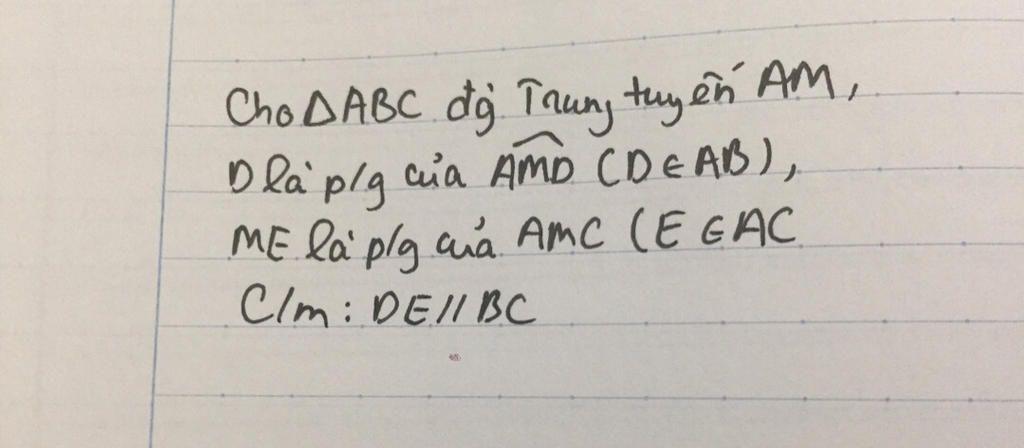 Cho ΔABC đg̀ Trung tuyến AM,
D là p/g của AMD (D ∈ AB),
ME là p/g của AMC (E ∈ AC
C/m : DE // BC